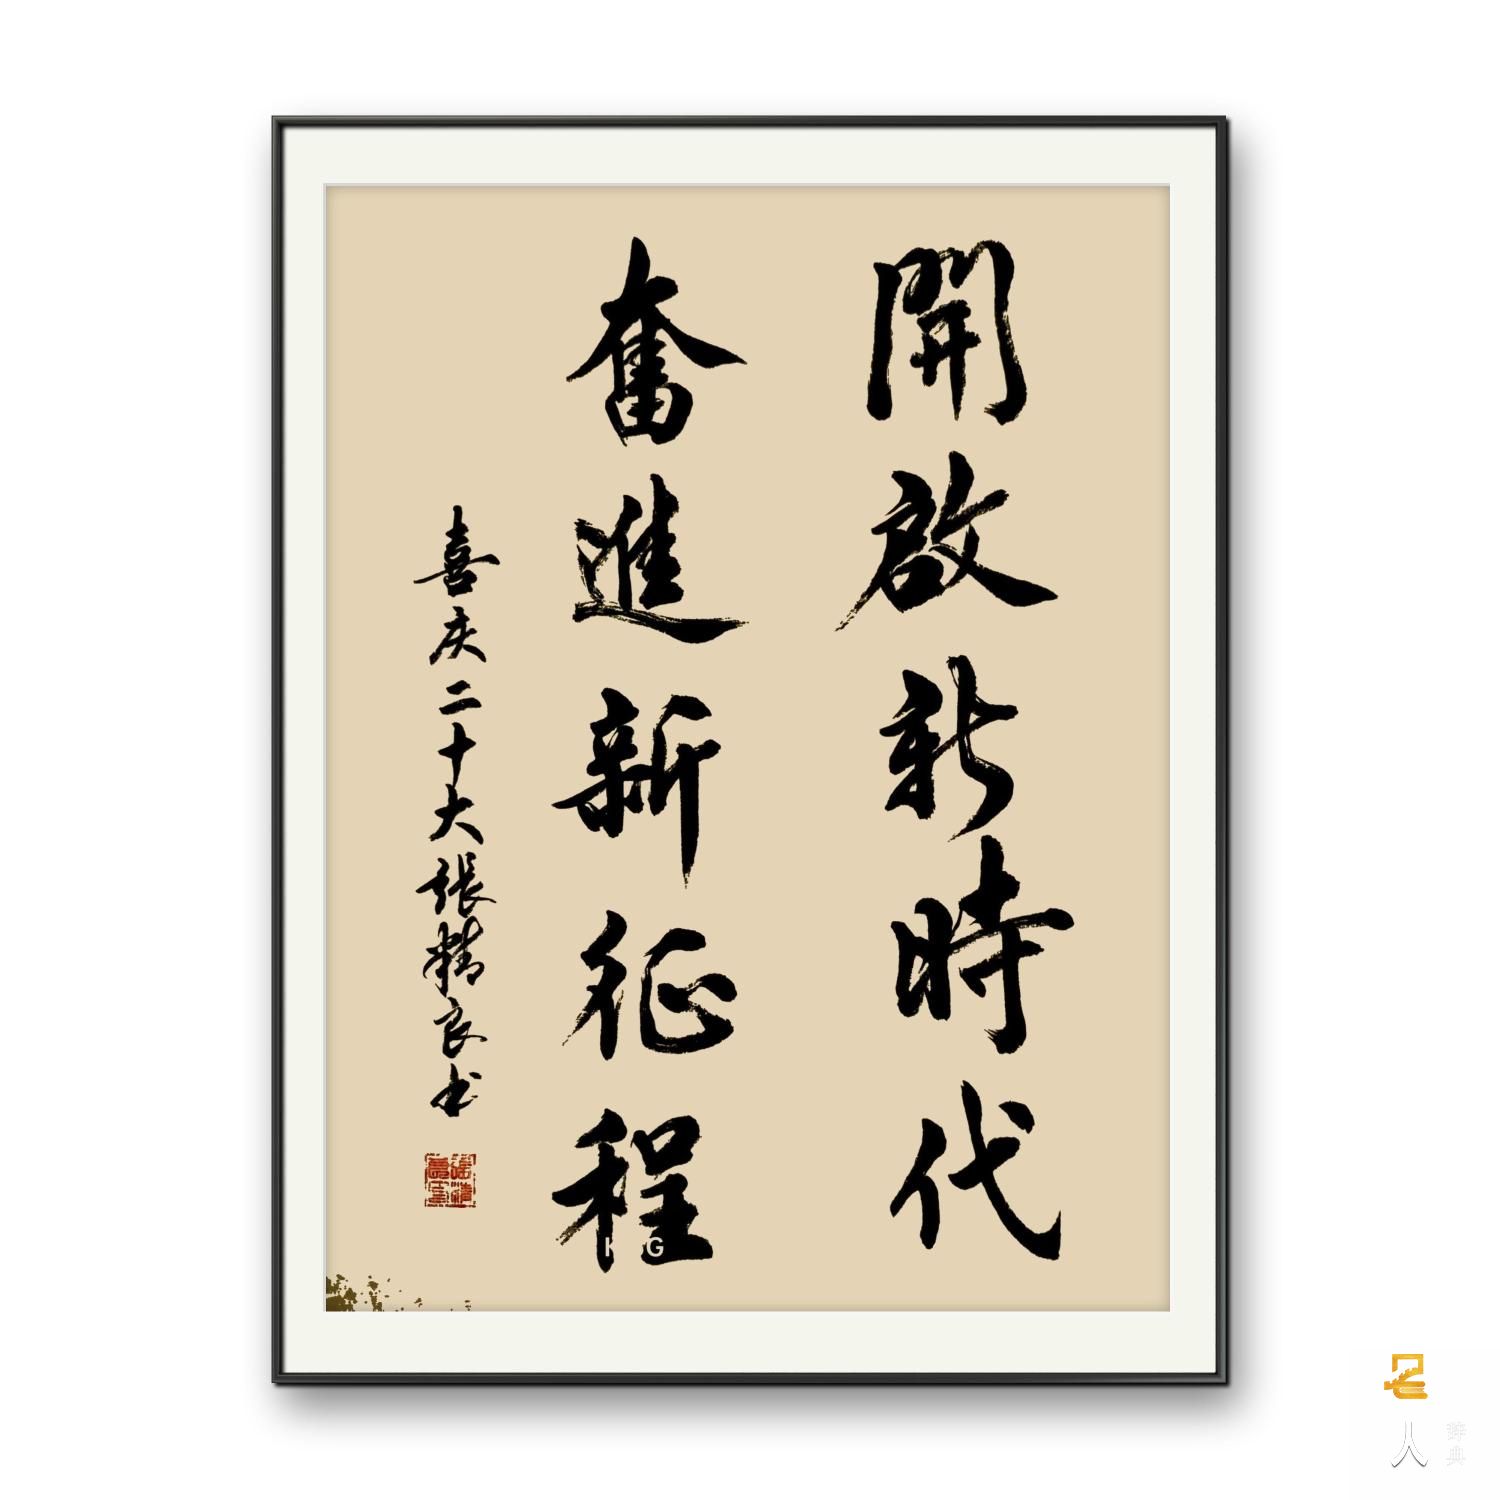 開啟新時代
奮進新征程
喜庆二十大張精良书
K G
人
辞典